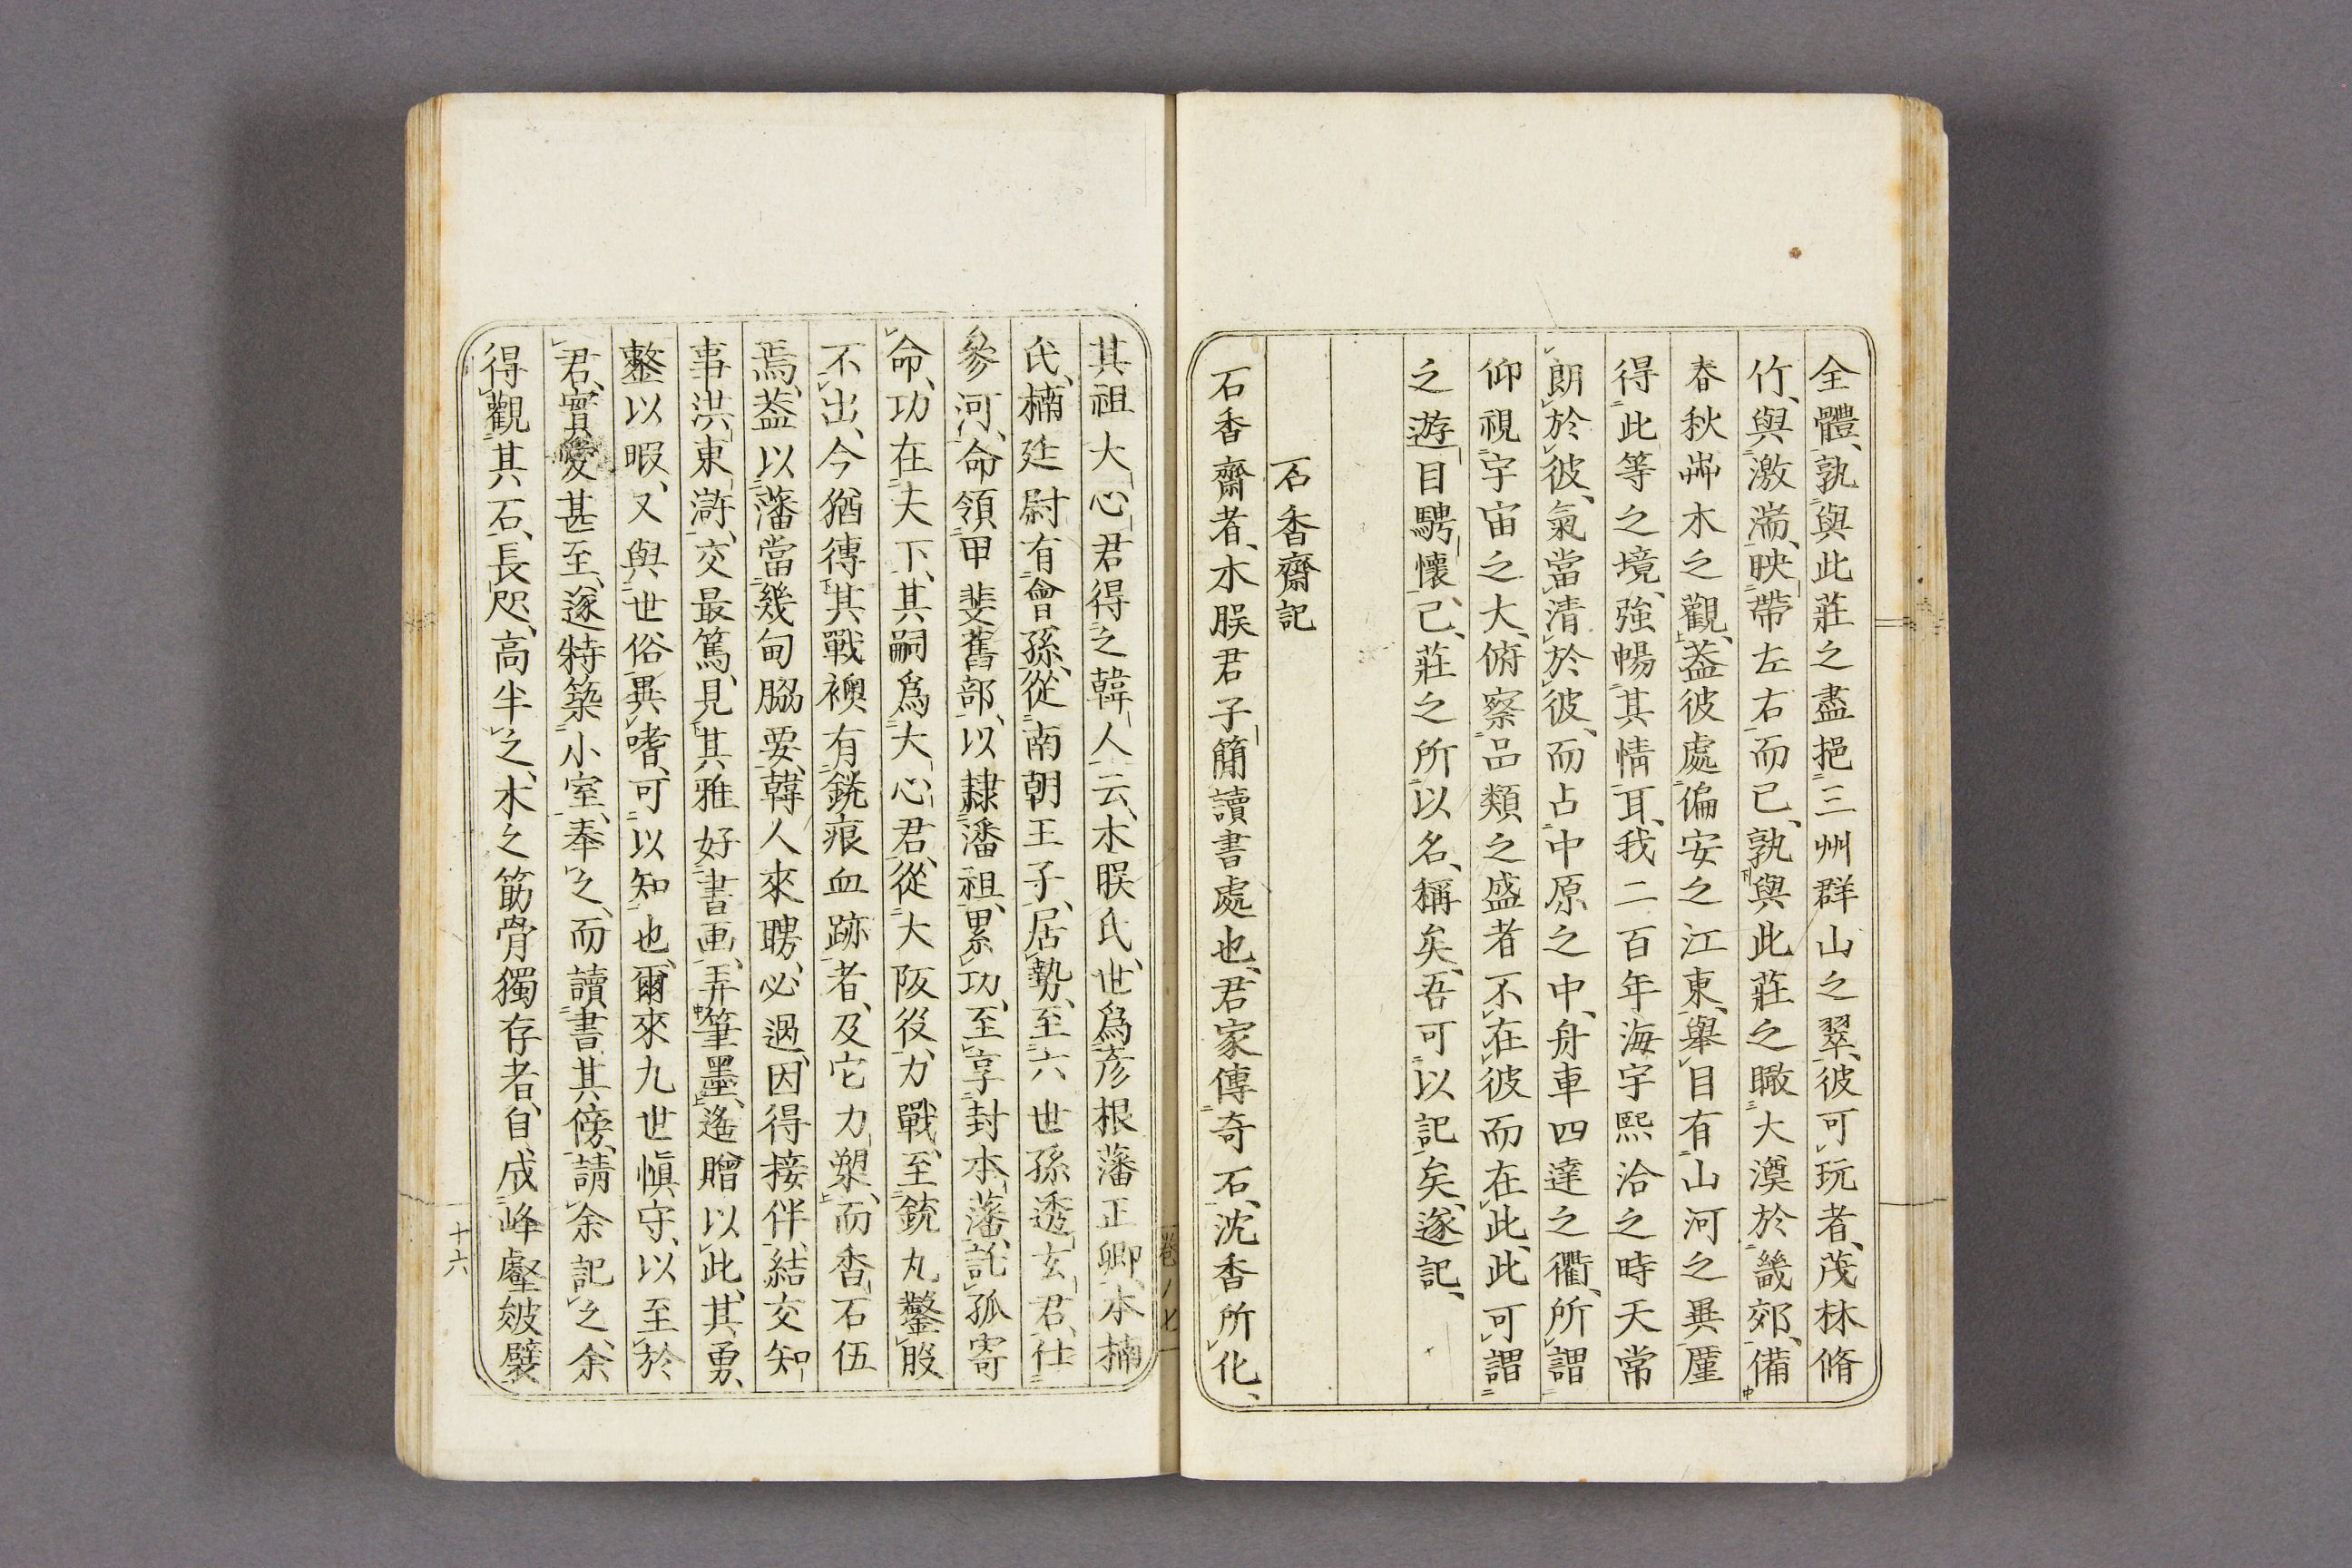 全體、孰與此莊之盡挹三州群山之翠、彼可玩者、茂林脩
竹、與激湍、映帶左右而已、孰與此莊之瞰大漠於畿郊、備
春秋艸木之觀、葢彼處偏安之江東、舉目有山河之異、厪
得此等之境、強暢其情耳、我二百年海宇熙洽之時天常
朗於彼、氣當清於彼、而占中原之中、舟車四達之衢、所謂
仰視宇宙之大、俯察品類之盛者不在彼而在此、此可謂
之遊目騁懷已、莊之所以名、稱矣、吾可以記矣、遂記、
石香齋記
石香齋者、木脵君子簡讀書處也、君家傳奇石、沈香所化、
其祖大心君得之韓人云、木脵氏、世爲彦根藩正卿、本楠
氏、楠廷尉有會孫、從南朝王子、居勢、至六世孫透玄君、仕
參河、命領甲斐舊部、以隷潘祖、累功、至享封本藩、託孤寄
命、功在夫下、其嗣爲大心君、從大阪役、力戰、至銃丸鑿股
不出、今猶傳其戰襖、有銃痕血跡者、及它力槊、而香石伍
焉、葢以藩當幾甸腦要、韓人來聘、必過、因得接伴、結交知
事洪東滸、交最篤、見其雅好書画、弄筆墨、遙贈以此、其勇、
整以暇、又與世俗異嗜、可以知也、爾來九世愼守、以至於
君、實愛甚至、遂特築小室、奉之、而讀書其傍、請余記之、余
得觀其石、長咫、高半之、木之筋骨獨存者、自成峰壑皴襞
卷ノ七
十六